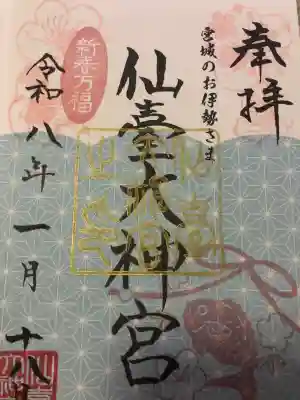 奉拝
宮城のお伊勢さま
仙臺大神宮
新春万福
令和八年一月十八日